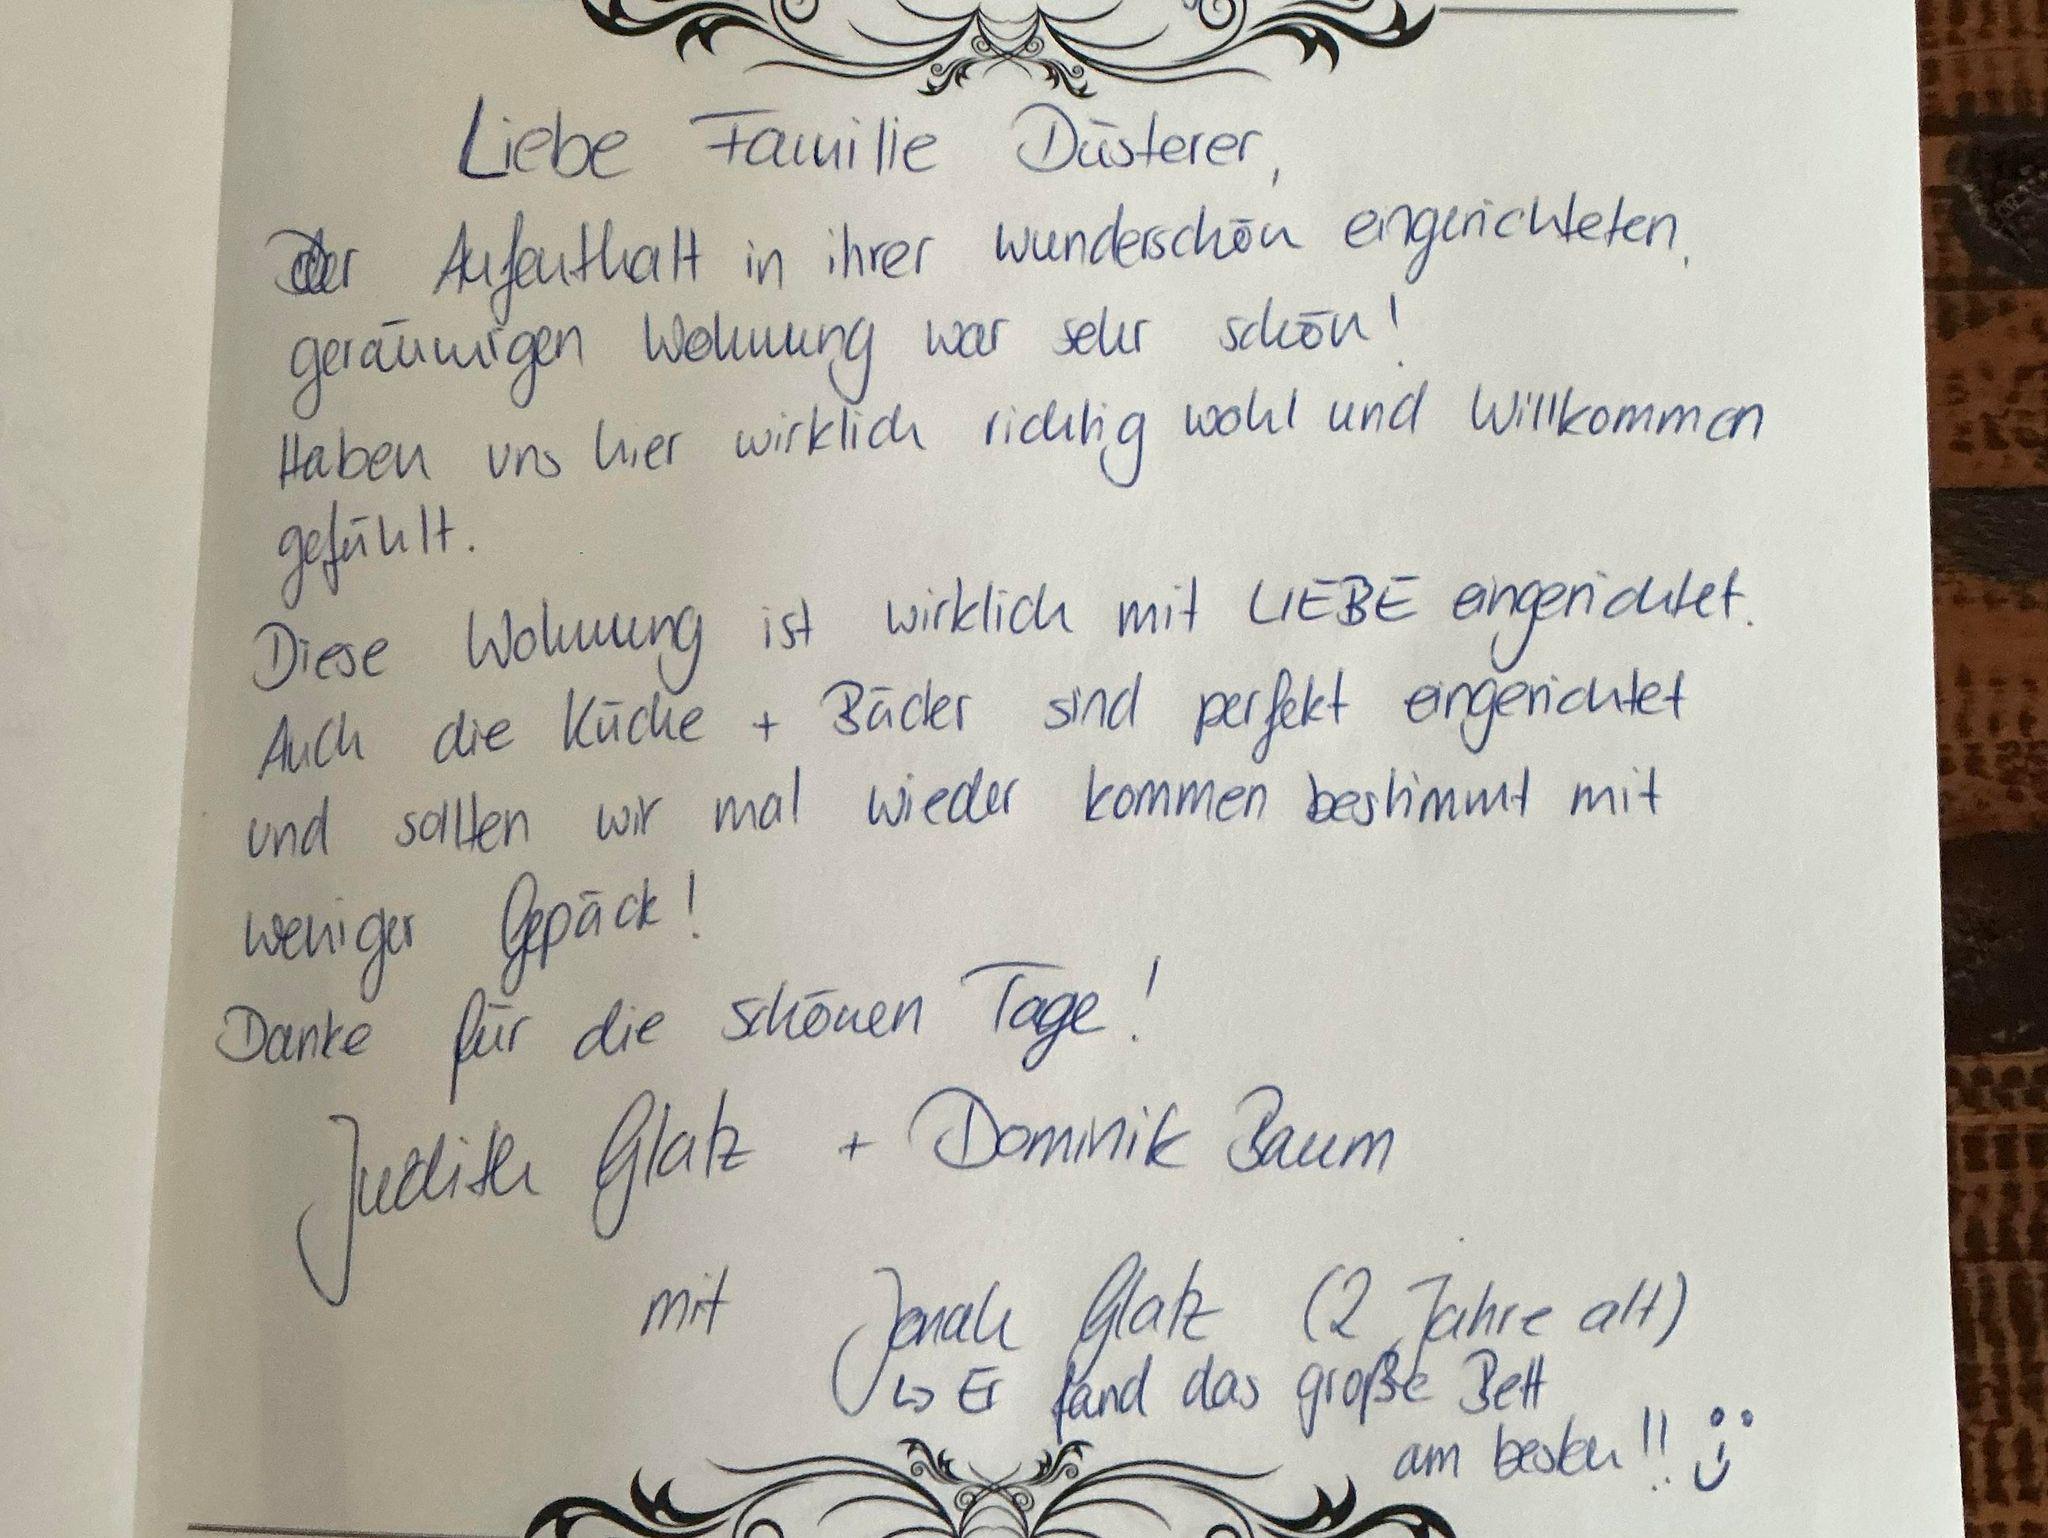 Liebe Familie Düsterer,
der Aufenthalt in ihrer wunderschön eingerichteten,
geräumigen Wohnung war sehr schön!
Haben uns hier wirklich richtig wohl und Willkommen
gefühlt.
Diese Wohnung ist wirklich mit LIEBE eingerichtet.
Auch die Küche + Bäder sind perfekt eingerichtet
und sollten wir mal wieder kommen bestimmt mit
weniger Gepäck!
Danke für die schönen Tage!
Judith Glatz + Dominik Baum
mit Jonah Glatz (2 Jahre alt)
↳ Er fand das große Bett
am besten!! :)